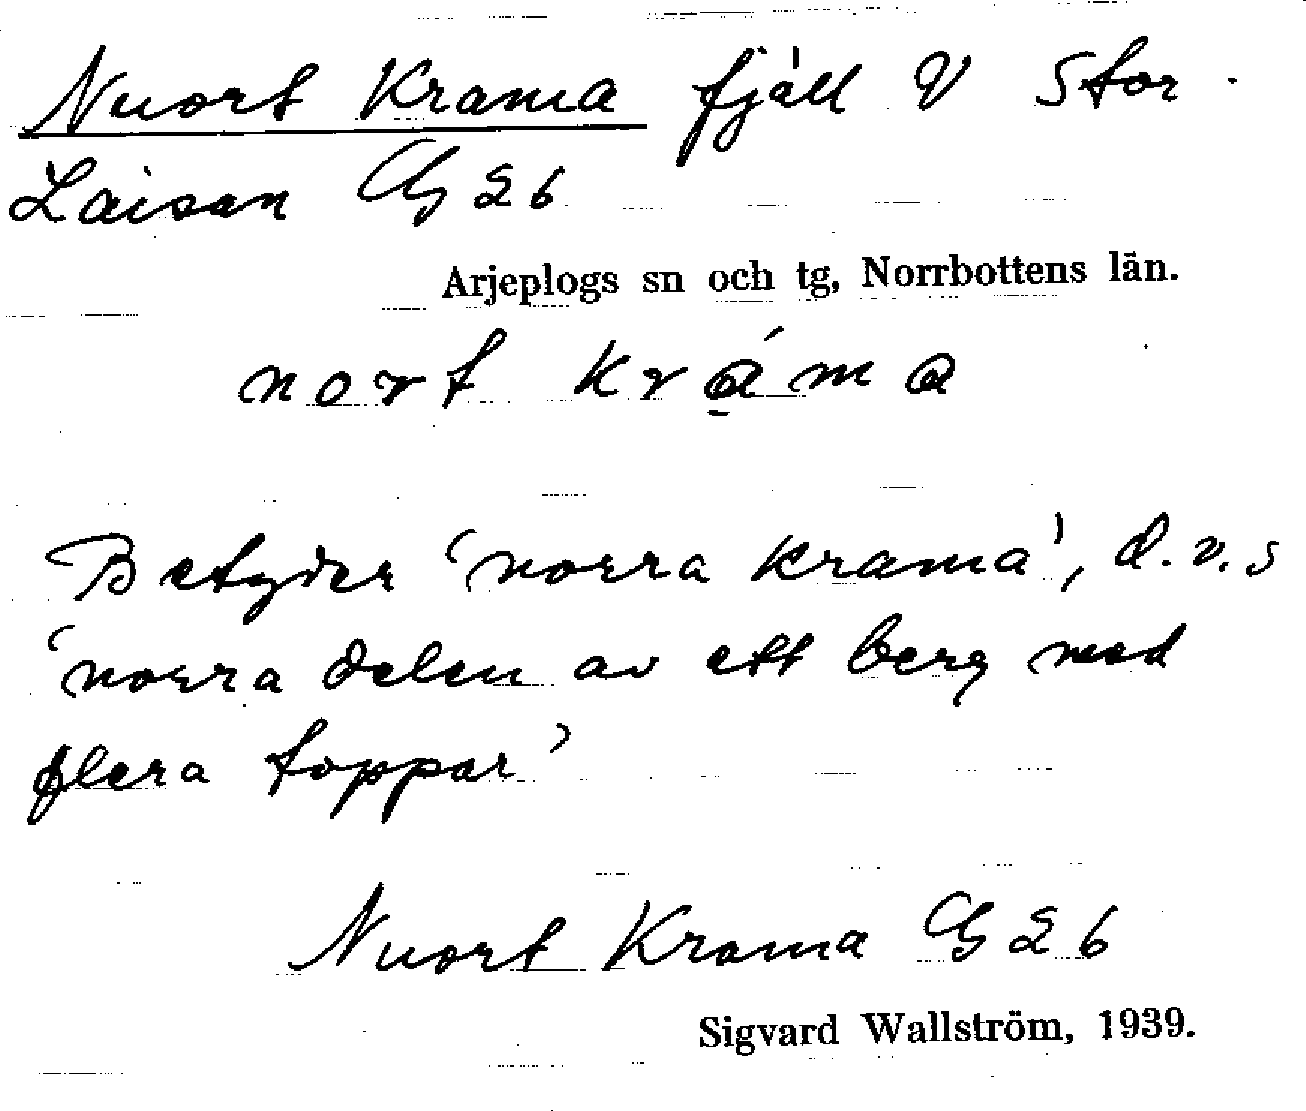 Nuort Krama fjäll V Stor-
Laisan G 26
Arjeplogs sn och tg, Norrbottens län.
nort kráma
Betyder 'norra krama', d.v.s
'norra delen av ett berg med
flera toppar'
Nuort Krama G 26
Sigvard Wallström, 1939.